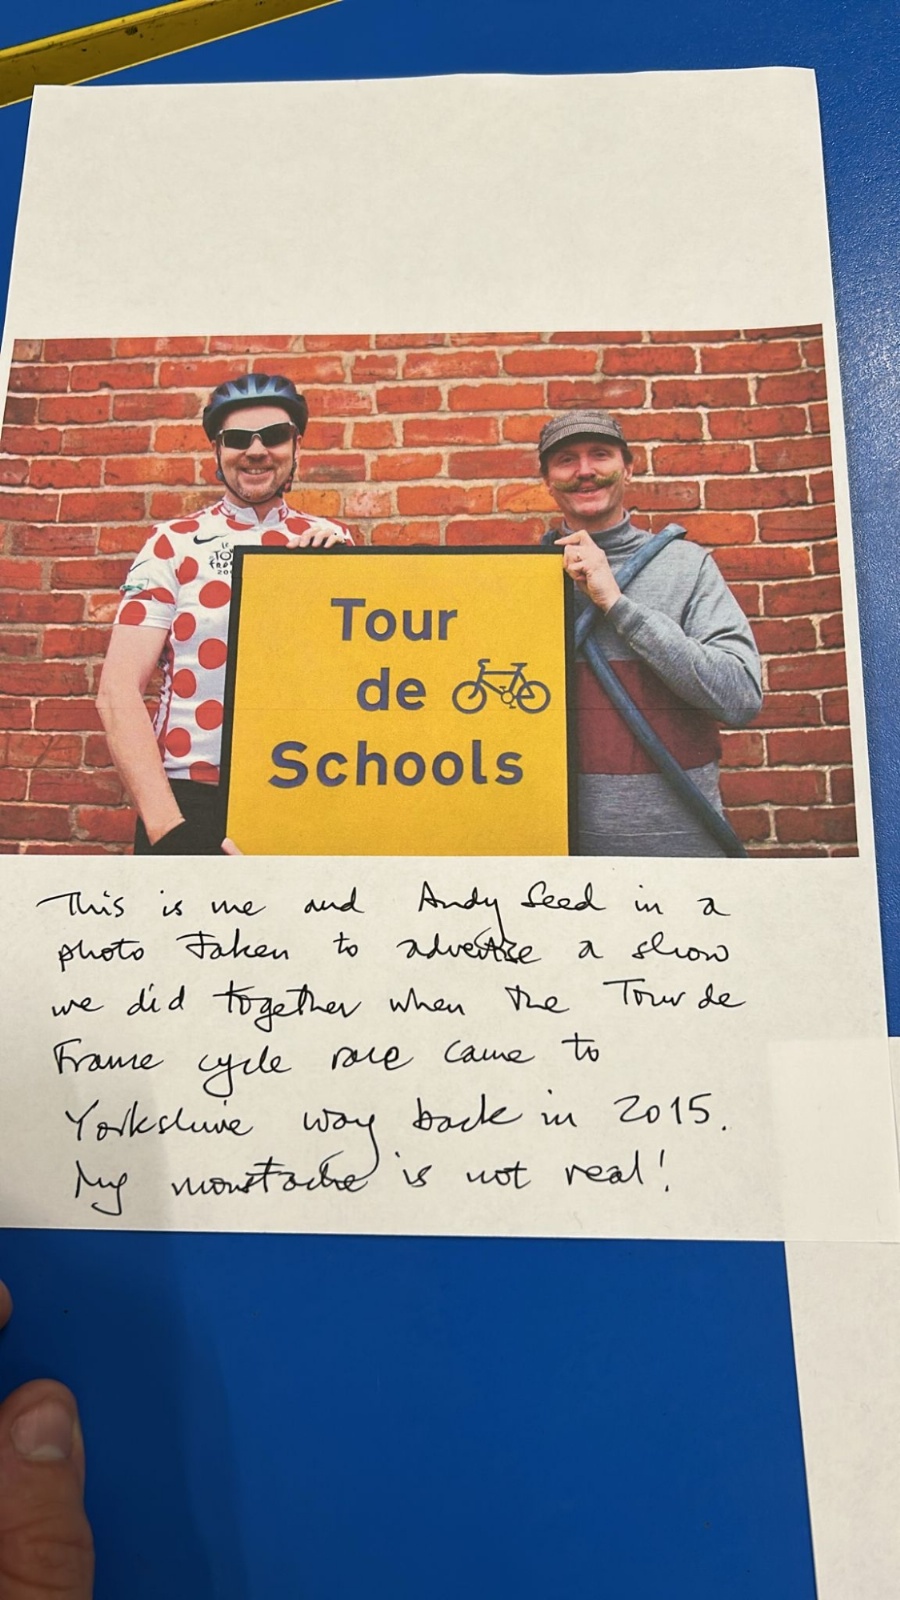 Tour
de
Schools
This is me and Andy Seed in a
photo taken to advertise a show
we did together when the Tour de
France cycle race came to
Yorkshire way back in 2015.
My moustache is not real!